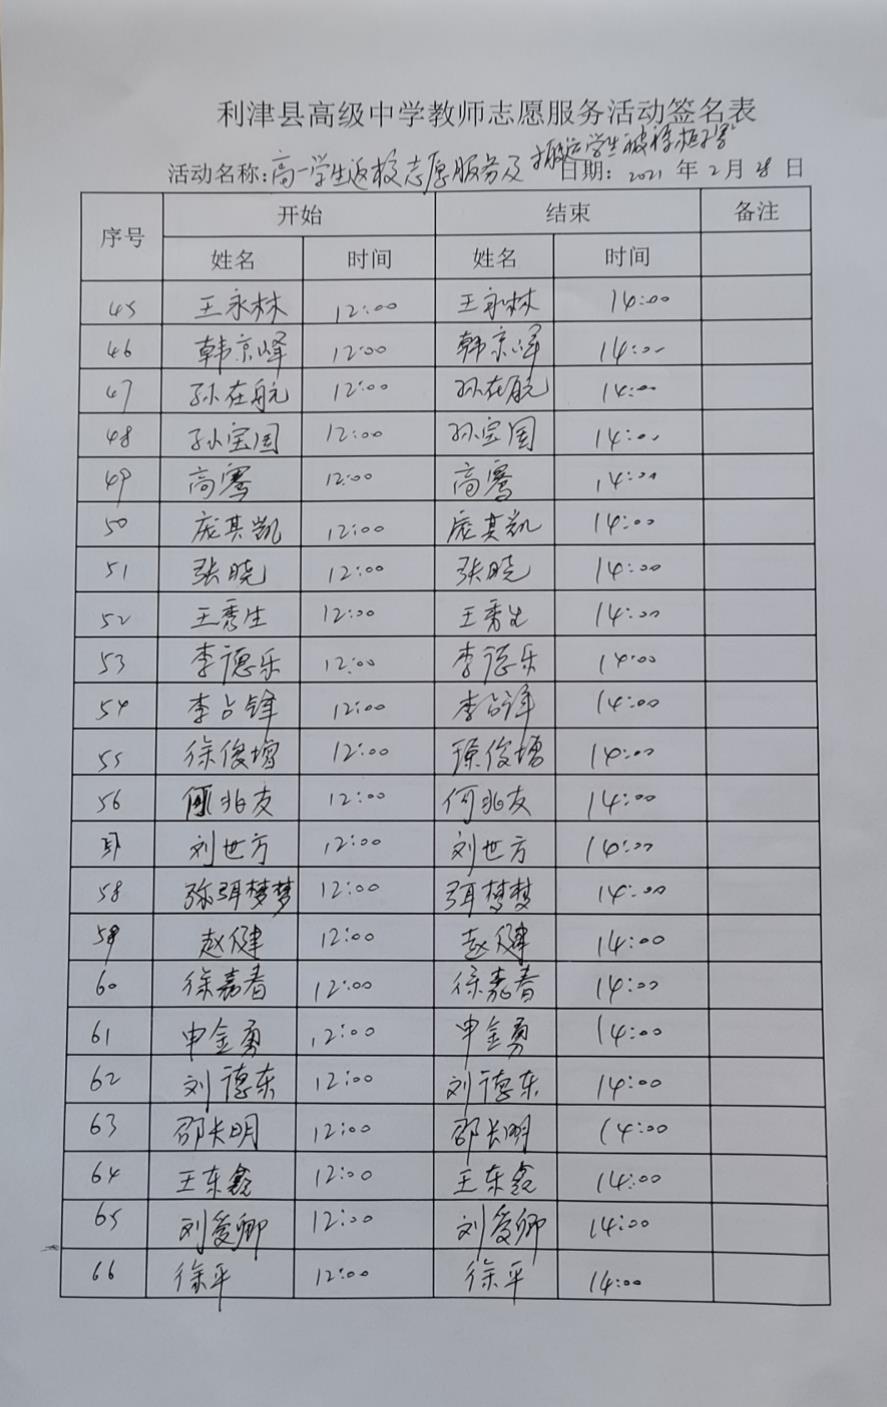 利津县高级中学教师志愿服务活动签名表
活动名称:高一学生返校志愿服务及搬运学生被褥 日期: 2021 年 2 月 28 日
序号 开始 结束 备注
姓名 时间 姓名 时间
45 王永林 12:00 王永林 14:00
46 韩京峰 12:00 韩京峰 14:00
47 孙在航 12:00 孙在航 14:00
48 孙宝国 12:00 孙宝国 14:00
49 高骞 12:00 高骞 14:00
50 庞其凯 12:00 庞其凯 14:00
51 张晓 12:00 张晓 14:00
52 王秀生 12:00 王秀生 14:00
53 李德乐 12:00 李德乐 14:00
54 李占锋 12:00 李占锋 14:00
55 徐俊增 12:00 徐俊增 14:00
56 何兆友 12:00 何兆友 14:00
57 刘世方 12:00 刘世方 14:00
58 弭梦梦 12:00 弭梦梦 14:00
59 赵健 12:00 赵健 14:00
60 徐嘉春 12:00 徐嘉春 14:00
61 申金勇 12:00 申金勇 14:00
62 刘德东 12:00 刘德东 14:00
63 邵长明 12:00 邵长明 14:00
64 王东鑫 12:00 王东鑫 14:00
65 刘爱卿 12:00 刘爱卿 14:00
66 徐平 12:00 徐平 14:00